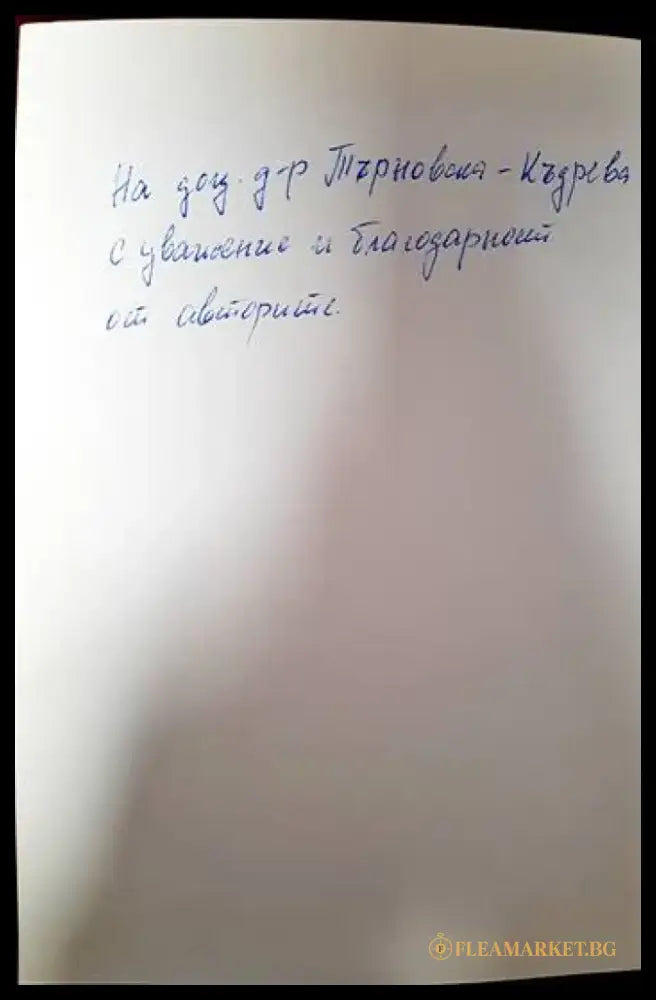 На доц. д-р Търновска-Къдрева
с уважение и благодарност
от авторите.
FLEAMARKET.BG